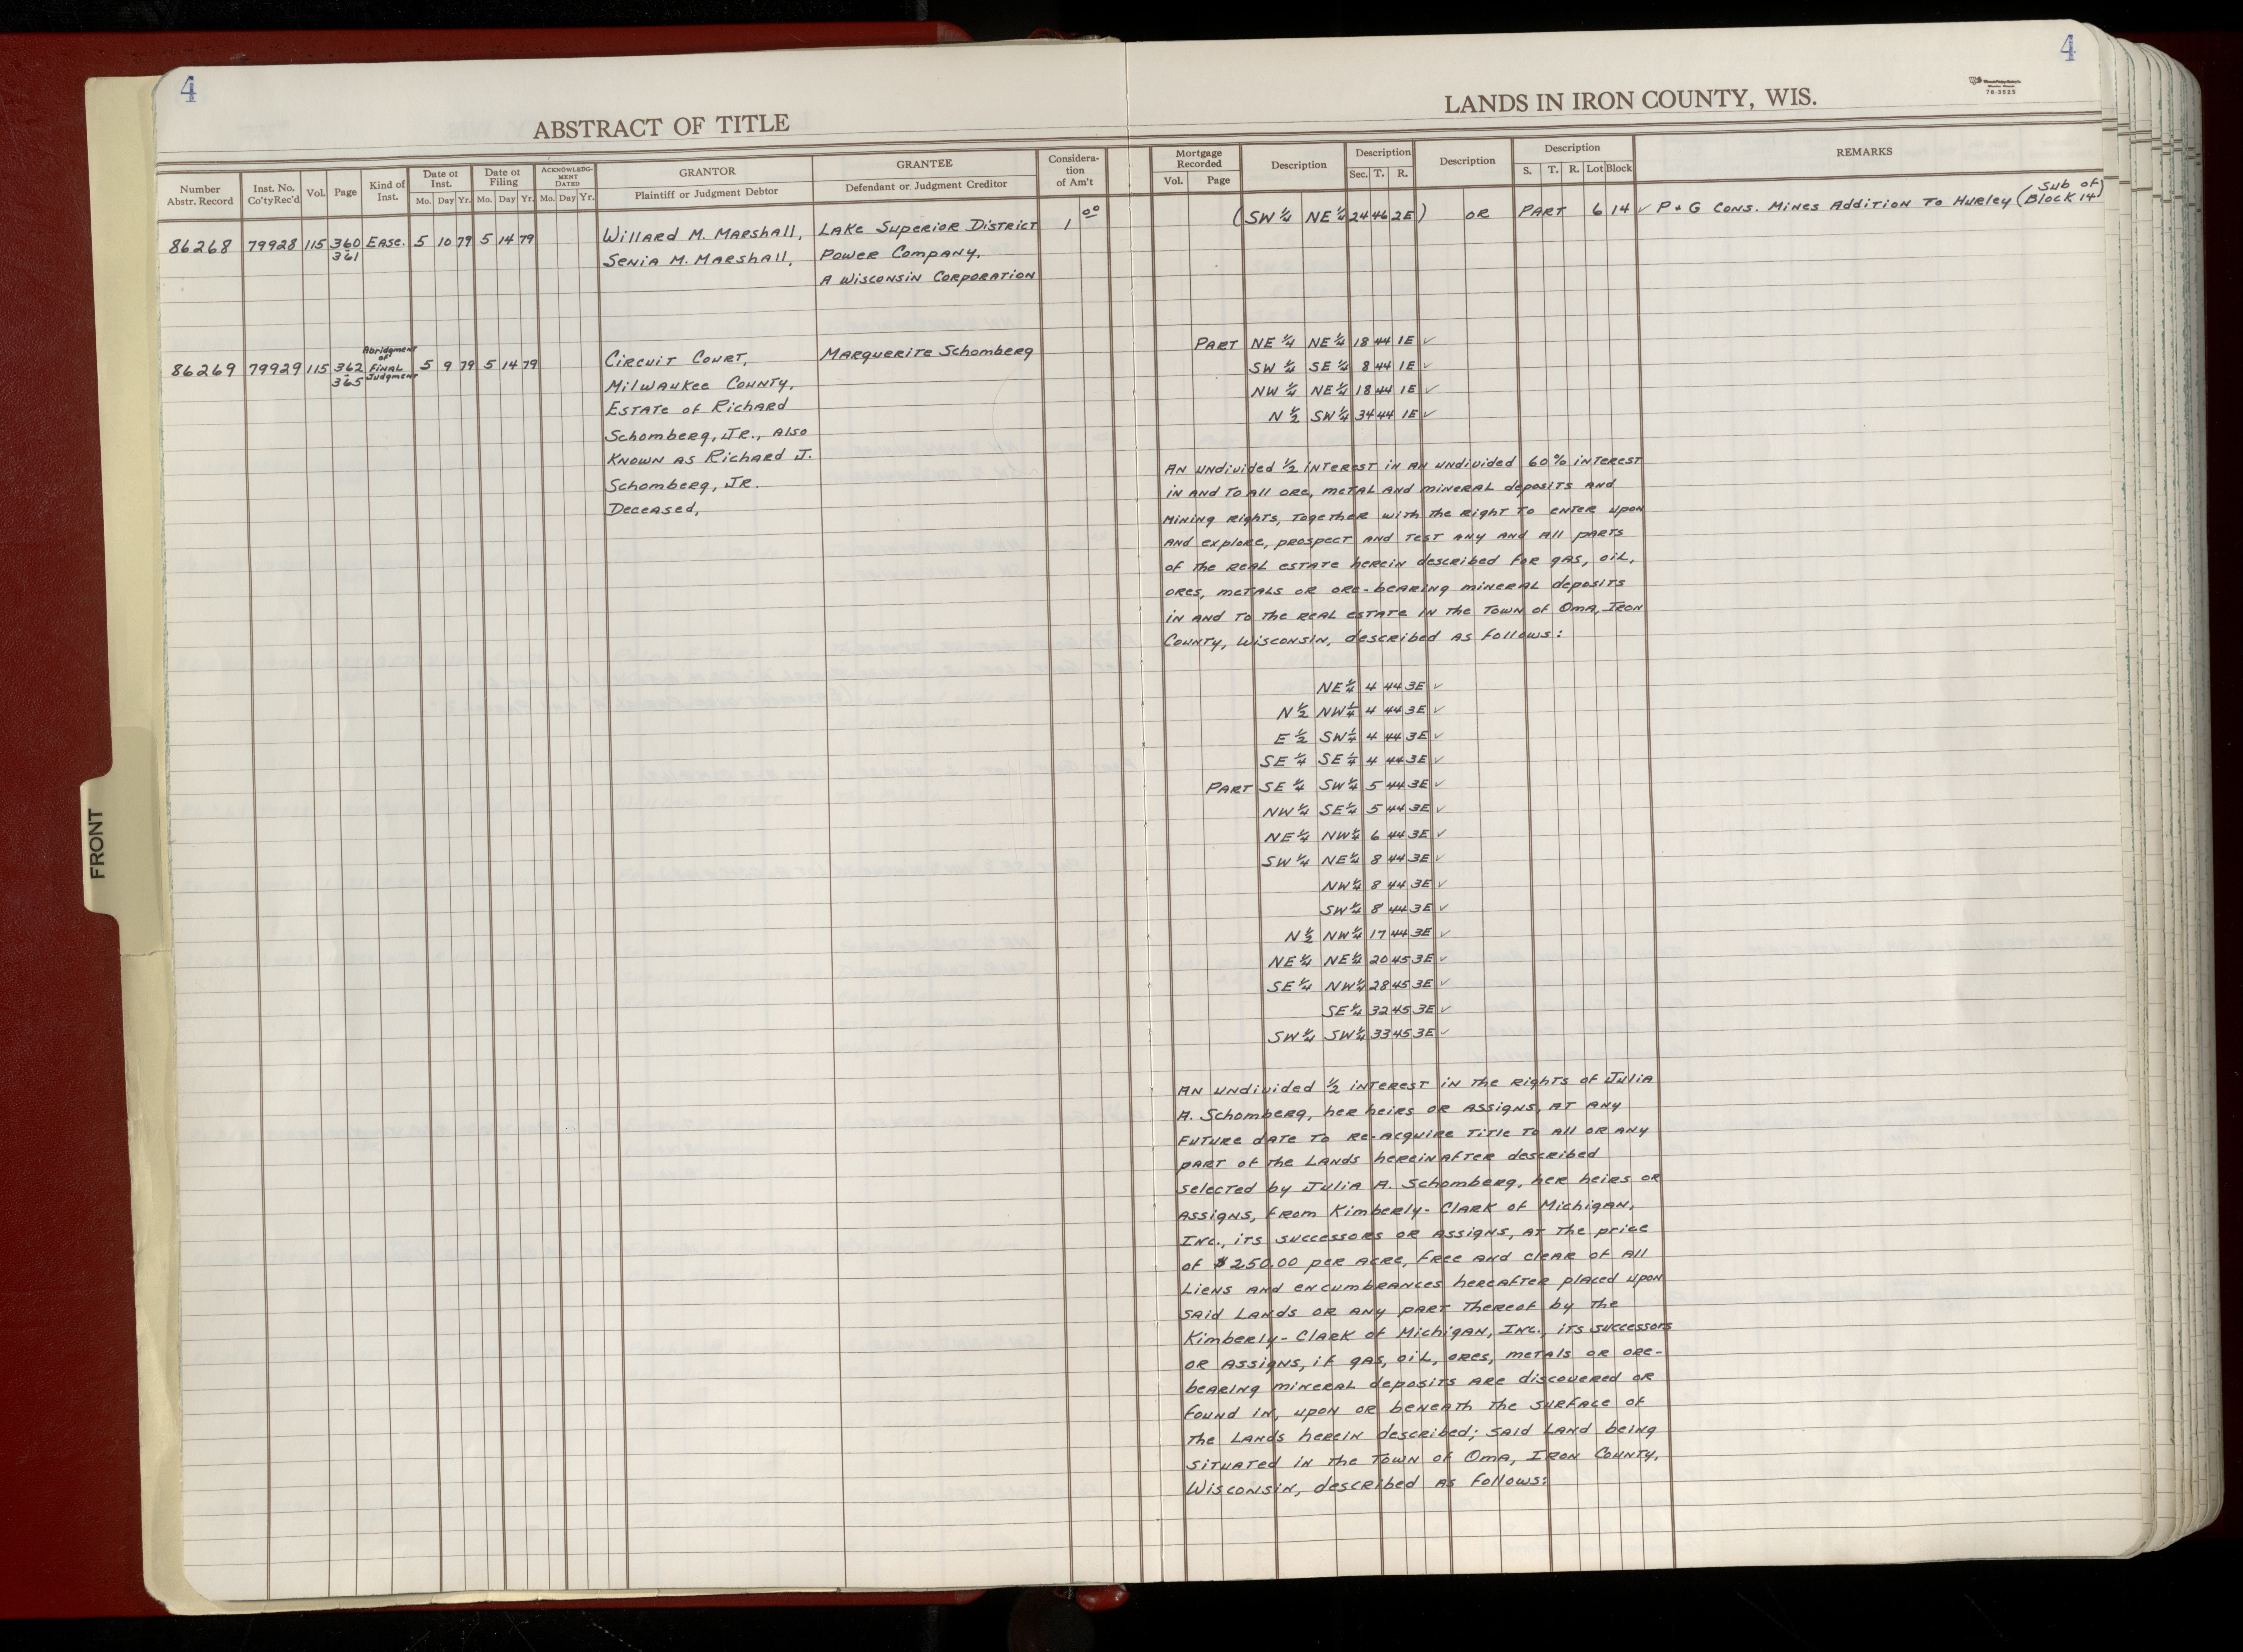 4
4
78-3525
ABSTRACT OF TITLE
LANDS IN IRON COUNTY, WIS.
Number Abstr. Record
Inst. No. Co'ty Rec'd
Vol.
Page
Kind of Inst.
Date of Inst.
Mo. Day Yr.
Date of Filing
Mo. Day Yr.
ACKNOWLEDGMENT DATED
Mo. Day Yr.
GRANTOR
Plaintiff or Judgment Debtor
GRANTEE
Defendant or Judgment Creditor
Consideration of Am't
Mortgage Recorded
Vol. Page
Description
Description
Sec. T. R.
Description
Description
S. T. R. Lot Block
REMARKS
86268 79928 115 360 361 Ease. 5 10 79 5 14 79
Willard M. Marshall,
Senia M. Marshall,
Lake Superior District
Power Company,
A Wisconsin Corporation
1 00
(SW 1/4 NE 1/4 24 46 2E) OR PART 6 14 ✓ P + G Cons. Mines Addition To Hurley (Sub of Block 14)
86269 79929 115 362 365 Abridgment of Final Judgment 5 9 79 5 14 79
Circuit Court,
Milwaukee County,
Estate of Richard
Schomberg, Jr., Also
Known as Richard J.
Schomberg, Jr.
Deceased,
Marguerite Schomberg
PART NE 1/4 NE 1/4 18 44 1E ✓
SW 1/4 SE 1/4 8 44 1E ✓
NW 1/4 NE 1/4 18 44 1E ✓
N 1/2 SW 1/4 34 44 1E ✓
An undivided 1/2 interest in an undivided 60% interest
in and to all ore, metal and mineral deposits and
mining rights, together with the right to enter upon
and explore, prospect and test any and all parts
of the real estate herein described for gas, oil,
ores, metals or ore-bearing mineral deposits
in and to the real estate in the Town of Oma, Iron
County, Wisconsin, described as follows:
NE 1/4 4 44 3E ✓
N 1/2 NW 1/4 4 44 3E ✓
E 1/2 SW 1/4 4 44 3E ✓
SE 1/4 SE 1/4 4 44 3E ✓
PART SE 1/4 SW 1/4 5 44 3E ✓
NW 1/4 SE 1/4 5 44 3E ✓
NE 1/4 NW 1/4 6 44 3E ✓
SW 1/4 NE 1/4 8 44 3E ✓
NW 1/4 8 44 3E ✓
SW 1/4 8 44 3E ✓
N 1/2 NW 1/4 17 44 3E ✓
NE 1/4 NE 1/4 20 45 3E ✓
SE 1/4 NW 1/4 28 45 3E ✓
SE 1/4 32 45 3E ✓
SW 1/4 SW 1/4 33 45 3E ✓
An undivided 1/2 interest in the rights of Julia
A. Schomberg, her heirs or assigns, at any
future date to re-acquire title to all or any
part of the lands hereinafter described
selected by Julia A. Schomberg, her heirs or
assigns, from Kimberly-Clark of Michigan,
Inc., its successors or assigns, at the price
of $250.00 per acre, free and clear of all
liens and encumbrances hereafter placed upon
said lands or any part thereof by the
Kimberly-Clark of Michigan, Inc., its successors
or assigns, if gas, oil, ores, metals or ore-
bearing mineral deposits are discovered or
found in, upon or beneath the surface of
the lands herein described; said land being
situated in the Town of Oma, Iron County,
Wisconsin, described as follows:
FRONT